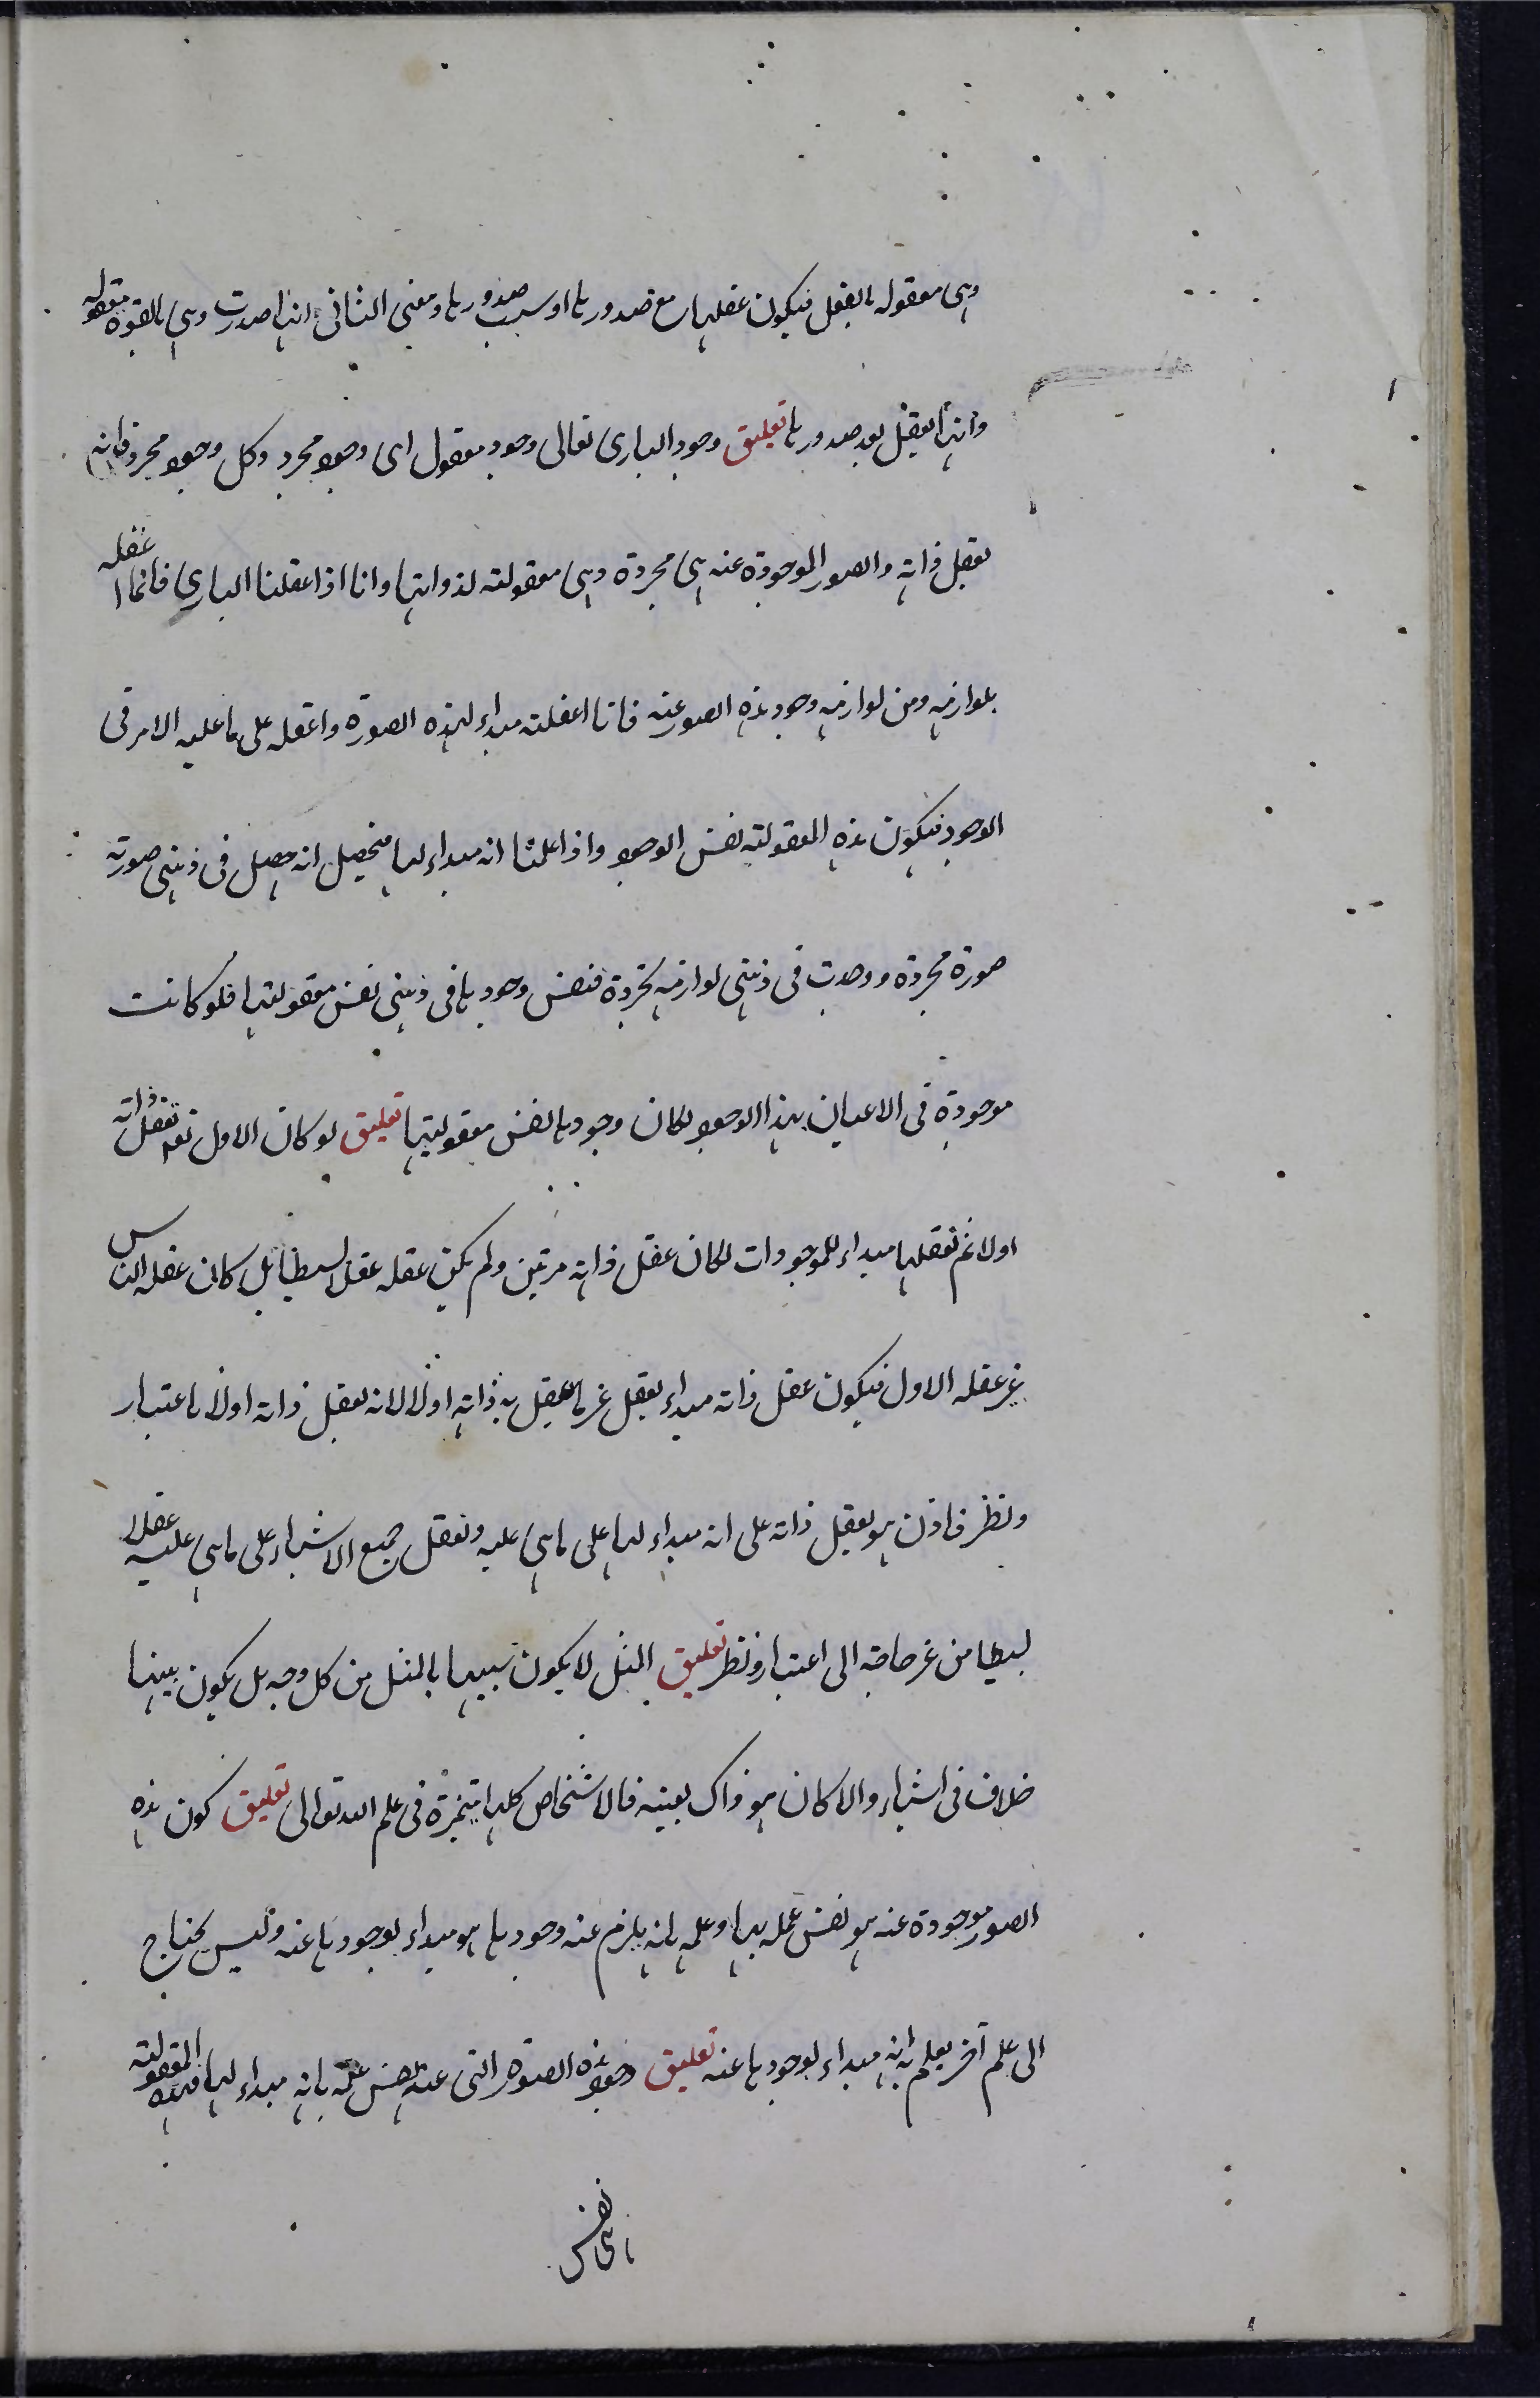 وهى معقوله بالفعل فيكون عقلها مع صدورها او سبب صدورها ومعنى الثانى انها صدرت وهى بالقوة معقوله
وانها تعقل بعد صدورها تعليق وجود البارى تعالى وجود معقول اى وجود مجرد وكل وجود مجرد فانه
يعقل ذاته والصور الموجودة عنه هى مجردة وهى معقولته لذواتها وانا اذا عقلنا البارى فانما عقله
بلوازمه ومن لوازمه وجود هذه الصور عنه فانا اعقلته مبداء لهذه الصورة واعقله على ما عليه الامر فى
الوجود فيكون هذه المعقولته نفس الوجود واذا علمنا انه مبداء لها فيحصل انه حصل فى ذهنى صورته
صورة مجردة ووجدت فى ذهنى لوازمه مجردة فنفس وجودها فى ذهنى نفس معقولتها فلو كانت
موجودة فى الاعيان بهذا الوجود لكان وجودها نفس معقوليتها تعليق لو كان الاول تعقل ذاته
اولا ثم تعقلها مبداء للموجودات لكان عقل ذاته مرتين ولم يكن عقله عقلا بسيطا بل كان عقله الناس
غير عقله الاول فيكون عقل ذاته مبداء يعقل غير ما يعقل به ذاته اولا لانه يعقل ذاته اولا باعتبار
ونظر فاذن هو يعقل ذاته على انه مبداء لها على ما هى عليه ويعقل جميع الاشياء على ما هى عليه عقلا
بسيطا من غير حاجة الى اعتبار ونظر تعليق المثل لا يكون شبيها بالمثل من كل وجه بل يكون بينهما
خلاف فى اشياء والا كان هو ذاك بعينه فالاشخاص كلها متميزة فى علم الله تعالى تعليق كون هذه
الصور موجودة عنه هو نفس علمه بها وعلمه بانه يلزم عنه وجودها هو مبداء لوجودها عنه وليس يحتاج
الى علم آخر يعلم به انه مبداء لوجودها عنه تعليق وجود هذه الصورة التى عنه نفس علمه بانه مبداء لها فهذه المعقولته
نفس